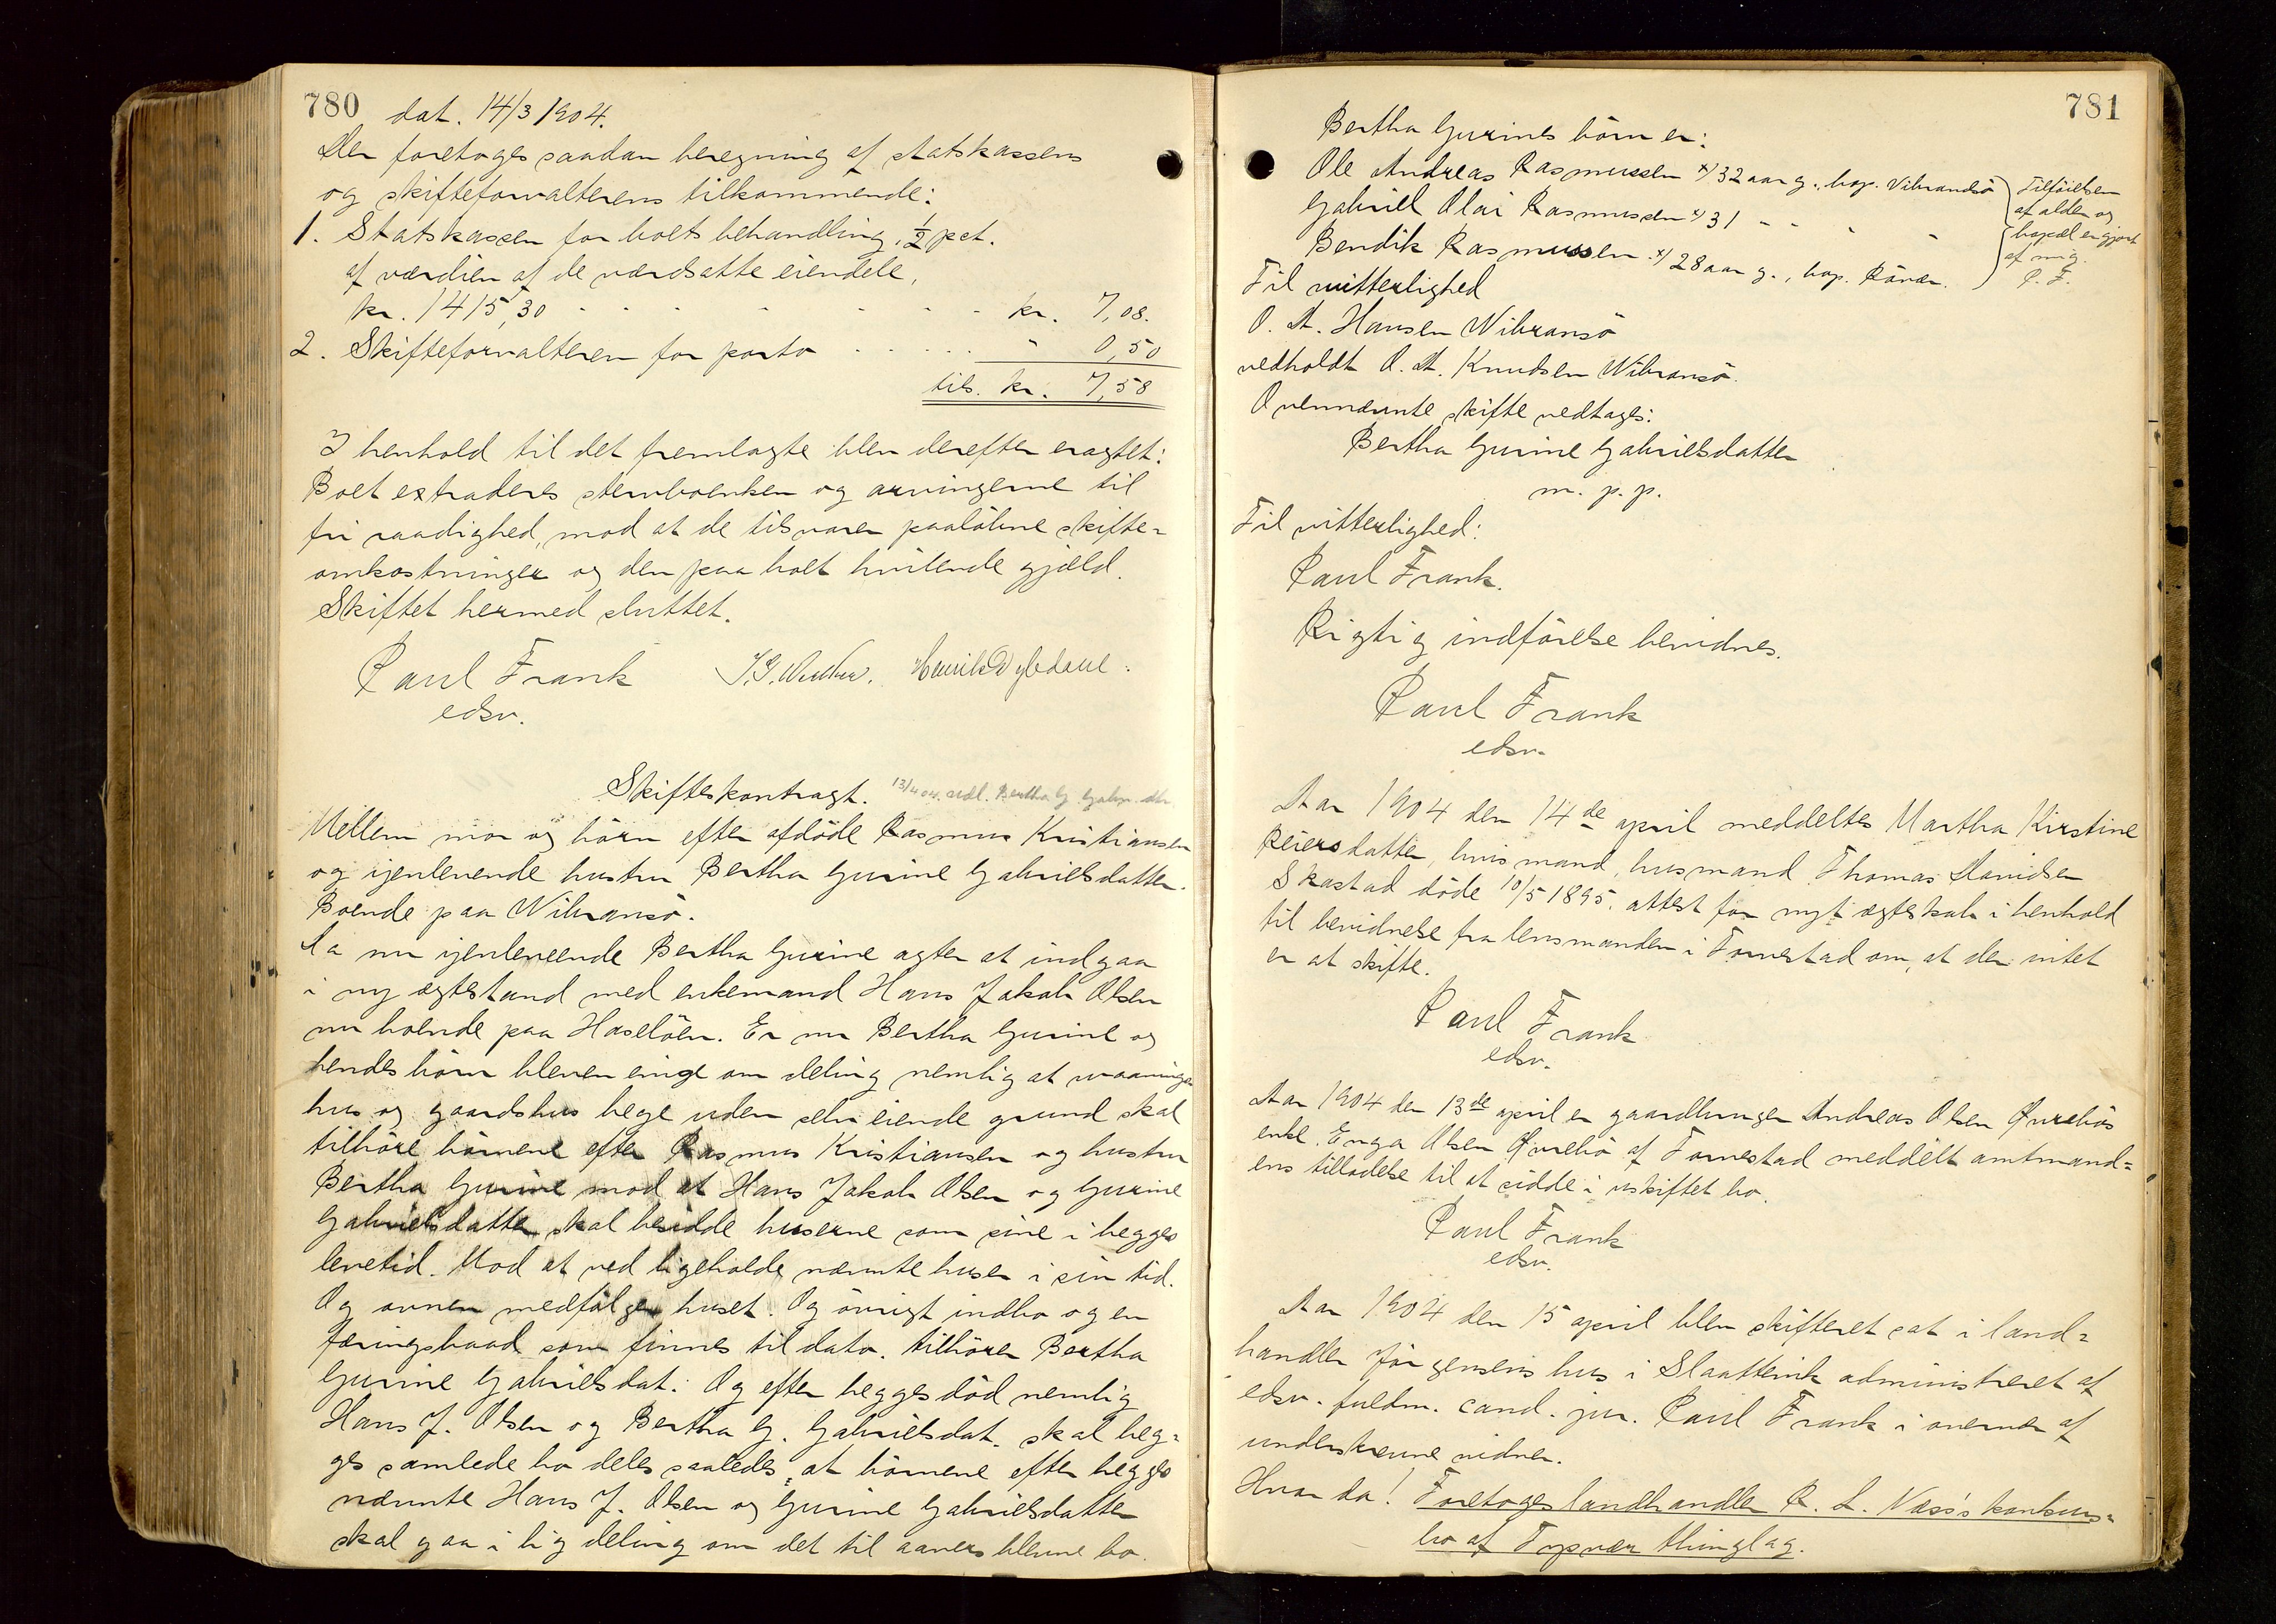 780 dat. 14/3 1904.
Der foretoges saadan beregning af statskassens
og skifteforvalterens tilkommende:
1. Statskassen for boets behandling, ½ pct.
af værdien af de værdsatte eiendele,
kr. 1415,30 - - - - - - kr. 7,08.
2. Skifteforvalteren for porto . . . . . " 0,50
tils. kr. 7,58
I henhold til det fremlagte blev derefter eragtet:
Boet extraderes stervboenken og arvingerne til
fri raadighed, mod at de tilsvarer paaløbne skifte=
omkostninger og den paa boet hvilende gjæld.
Skiftet hermed sluttet.
Paul Frank
edsv.
Skifteskontragt. 13/4 04. udl. Bertha G. Gabr. dtr
Mellem mor og børn efter afdøde Rasmus Kristiansen
og igenlevende hustru Bertha Gurine Gabrielsdatter.
Boende paa Wibransø.
Da nu igenleveende Bertha Gurine agter at indgaa
i ny egtestand med enkemand Hans Jakob Olsen
nu boende paa Haseløen. Er nu Bertha Gurine og
hendes børn bleven enige om deling nemlig at vaanings
hus og gaardshus bege uden selv eiende grund skal
tilhøre børnene efter Rasmus Kristiansen og hustru
Bertha Gurine mod at Hans Jakob Olsen og Gurine
Gabrielsdatter skal besidde huserne som sine i begges
levetid. Mod at ved ligeholde nævnte huser i sin tid.
Og ovnen medfølger huset. Og øvrigt indbo og en
færingsbaad som finnes til dato. tilhører Bertha
Gurine Gabrielsdat. Og efter begges død nemlig
Hans J. Olsen og Bertha G. Gabrielsdat. skal beg=
ges samlede bo deles saaledes, at børnene efter begges
nævnte Hans J. Olsen og Gurine Gabrielsdatter
skal gaa i lig deling om det til aavers blevne bo.
781
Bertha Gurines børn er:
Ole Andreas Rasmussen x) 32 aar g., bop. Vibrandsø
Gabriel Olai Rasmussen x) 31 - - - -
Bendik Rasmussen x) 28 aar g., bop. Røvær.
Tilføielsen
af alder og
bopæl er gjort
af mig.
P. F.
Til vitterlighed
O. A. Hansen Wibransø
vedholdt O. A. Knudsen Wibransø.
Ovennævnte skifte vedtages:
Bertha Gurine Gabrielsdatter
m. p. p.
Til vitterlighed:
Paul Frank.
Rigtig indførelse bevidnes.
Paul Frank
edsv.
Aar 1904 den 14de april meddeltes Martha Kirstine
Reiersdatter, hvis mand, husmand Thomas Davidsen
Skastad døde 10/5 1895, attest for nyt ægteskab i henhold
til bevidnelse fra lensmanden i Tornestad om, at der intet
er at skifte.
Paul Frank
edsv.
Aar 1904 den 13de april er gaardbruger Andreas Olsen Øvrebøs
enke Enga Olsen Øvrebø af Tornestad meddelt amtmand=
ens tilladelse til at sidde i uskiftet bo.
Paul Frank
edsv.
Aar 1904 den 15 april blev skifteret sat i land=
handler Jørgensens hus i Slaattevik administreret af
edsv. fuldm. cand. jur. Paul Frank i overvær af
underskrevne vidner.
Hvor da! Foretoges landhandler R. L. Næss's konkurs=
bo af Tysvær thinglag.